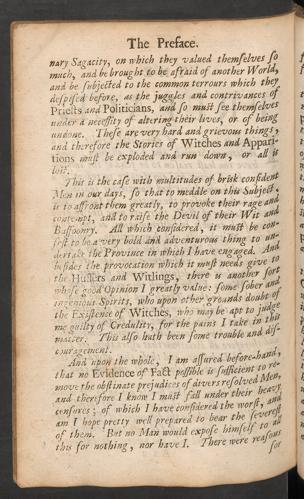 The Preface.
nary Sagacity, on which they valued themselves so
much, and be brought to be afraid of another World,
and be subjected to the common terrours which they
despised before, as the juggles and contrivances of
Priests and Politicians, and so must see themselves
under a necessity of altering their lives, or of being
undone. These are very hard and grievous things,
and therefore the Stories of Witches and Appari-
tions must be exploded and run down, or all is
lost.
This is the case with multitudes of brisk confident
Men in our days, so that to meddle on this Subject,
is to affront them greatly, to provoke their rage and
contempt, and to raise the Devil of their Wit and
Buffoonry. All which considered, it must be con-
fest to be a very bold and adventurous thing to un-
dertake the Province in which I have engaged. And
besides the provocation which it must needs give to
the Huffers and Witlings, there is another sort
whose good Opinion I greatly value: some sober and
ingenious Spirits, who upon other grounds doubt of
the Existence of Witches, who may be apt to judge
me guilty of Credulity, for the pains I take in this
matter. This also hath been some trouble and dis-
couragement.
And upon the whole, I am assured before-hand,
that no Evidence of Fact possible is sufficient to re-
move the obstinate prejudices of divers resolved Men,
and therefore I know I must fall under their heavy
censures; of which I have considered the worst, and
am I hope pretty well prepared to bear the severest
of them. But no Man would expose himself to all
this for nothing, nor have I. There were reasons
for